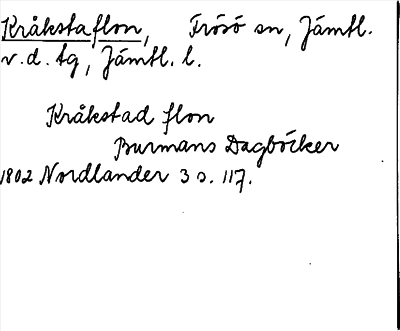 Kråkstaflon, Frösö sn, Jämtl.
v. d. tg, Jämtl. l.
Kråkstad flon
Burmans Dagböcker
1802 Nordlander 3 s. 117.